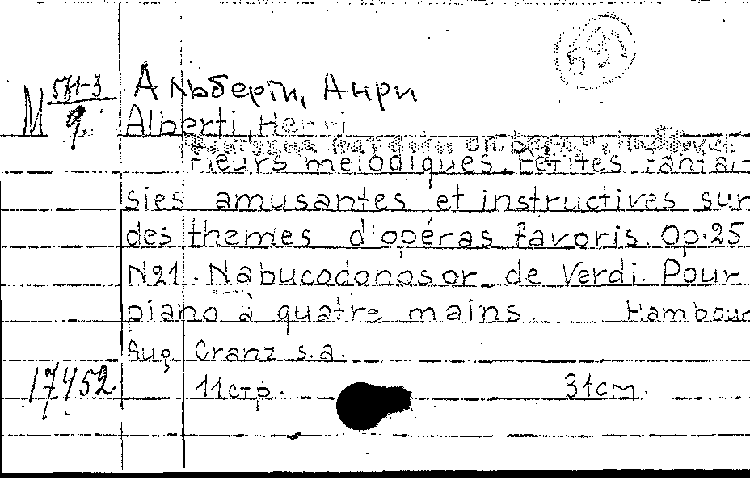 М 581-3
9
Альберти, Анри
Alberti, Henri
Fleurs mélodiques. Petites fantai-
sies amusantes et instructives sur
des themes d'opéras favoris. Op.25
N21. Nabucodonosor de Verdi. Pour
piano à quatre mains. Hambour
Aug. Cranz s.a.
17452 11стр. 31см.